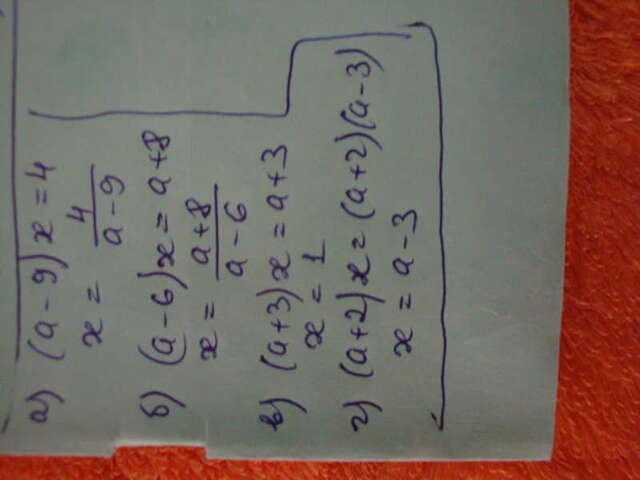 а) (a-9)x=4
x = 4/(a-9)
б) (a-6)x=a+8
x = (a+8)/(a-6)
в) (a+3)x=a+3
x=1
г) (a+2)x=(a+2)(a-3)
x=a-3